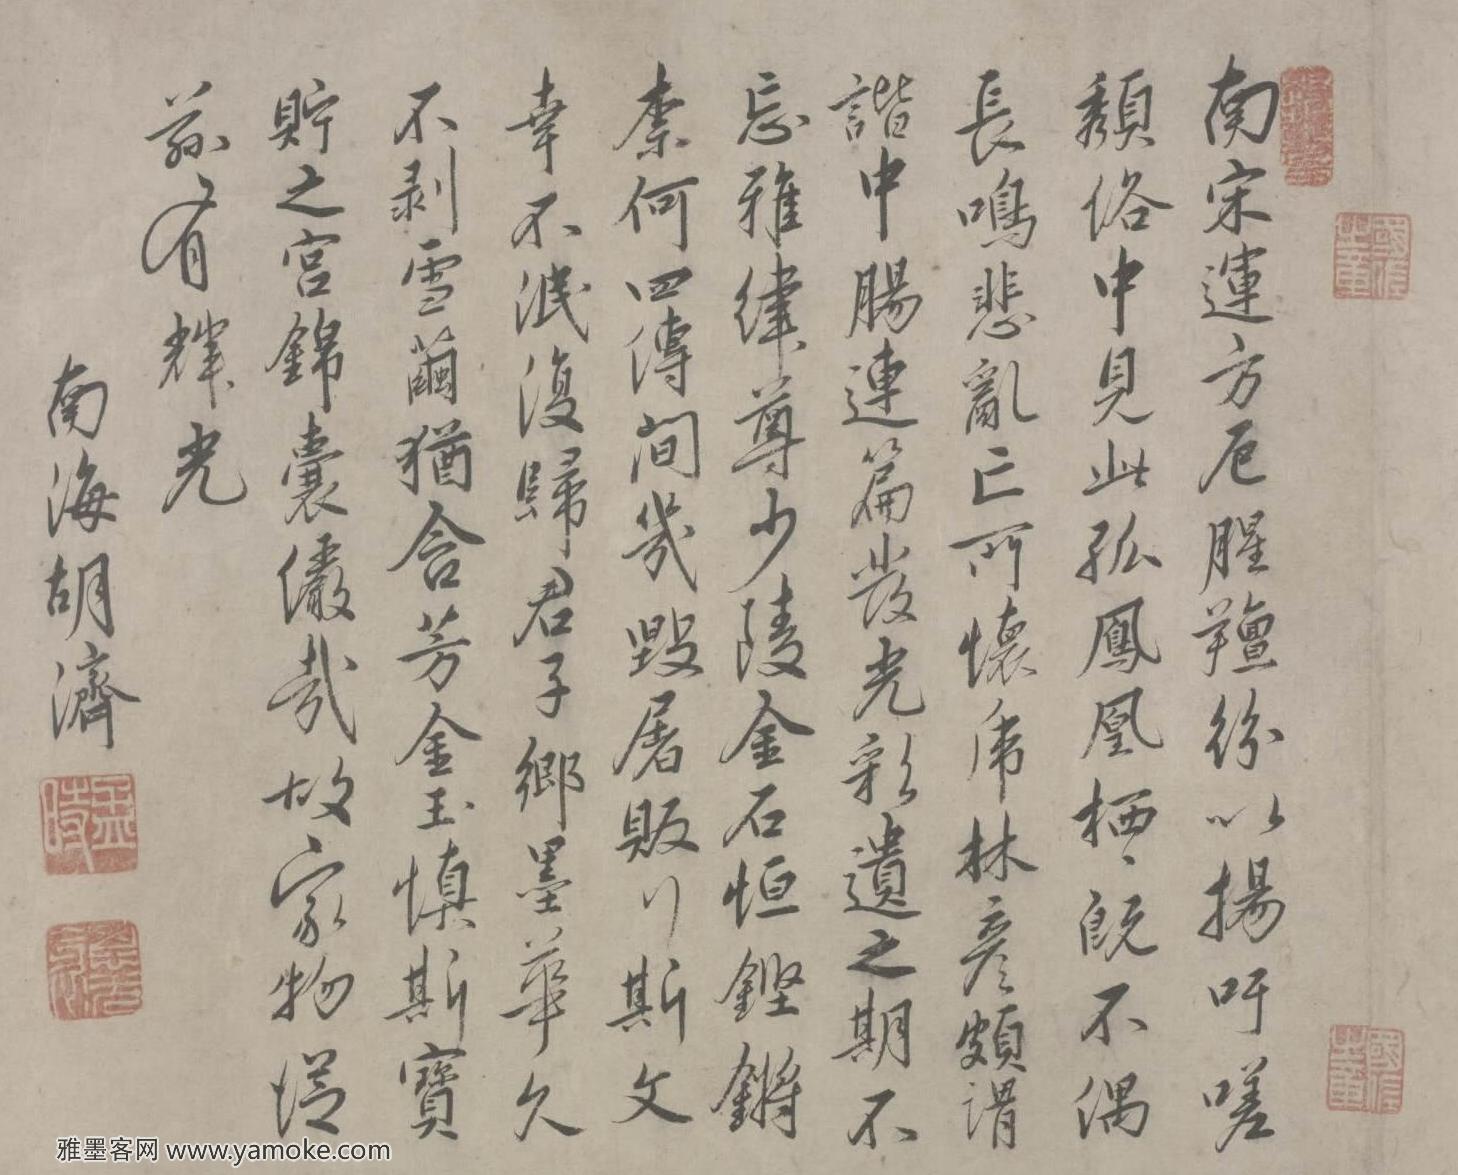 南宋運方厄腥羶紛以揚吁嗟
頹俗中見此孤鳳凰栖栖既不偶
長鳴悲亂亡所懷庸林彥頗謂
諧中腸連篇發光彩遺之期不
忘雅律尊少陵金石恒鏗鏘
柰何四傳間幾毀屠販行斯文
幸不泯復歸君子鄉墨華久
不剥雪繭猶含芳金玉慎斯寶
貯之宮錦囊儆哉故家物從
茲有輝光
南海胡濟
孟時
雅墨客网 www.yamoke.com